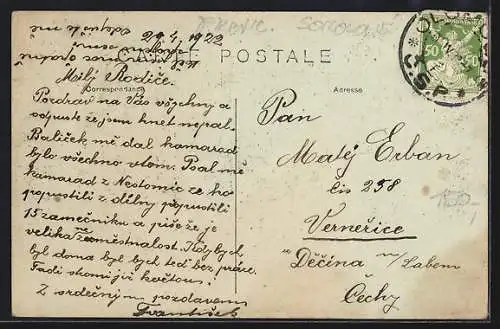 29.4.1922
CARTE POSTALE
Correspondance
Adresse
Milý Rodiče.
Pozdrav na Vás všechny a
odpuste že jsem hnet nepsal.
Balíček mě dal kamarad
bylo všechno vtom. Psal mě
kamarad z Nestomic ze ho
popustili z dílny popustili
15 zamečníku a píše že je
velika zaměstnalost. Kdy bych
byl doma byl bych teď bez práce.
Tadi stomi již květou!
Z srdečným pozdravem
František
Pán
Matěj Erban
čís 258
Verneřice
Děčína n/Labem
Čechy
50
Č.S.P.
150-